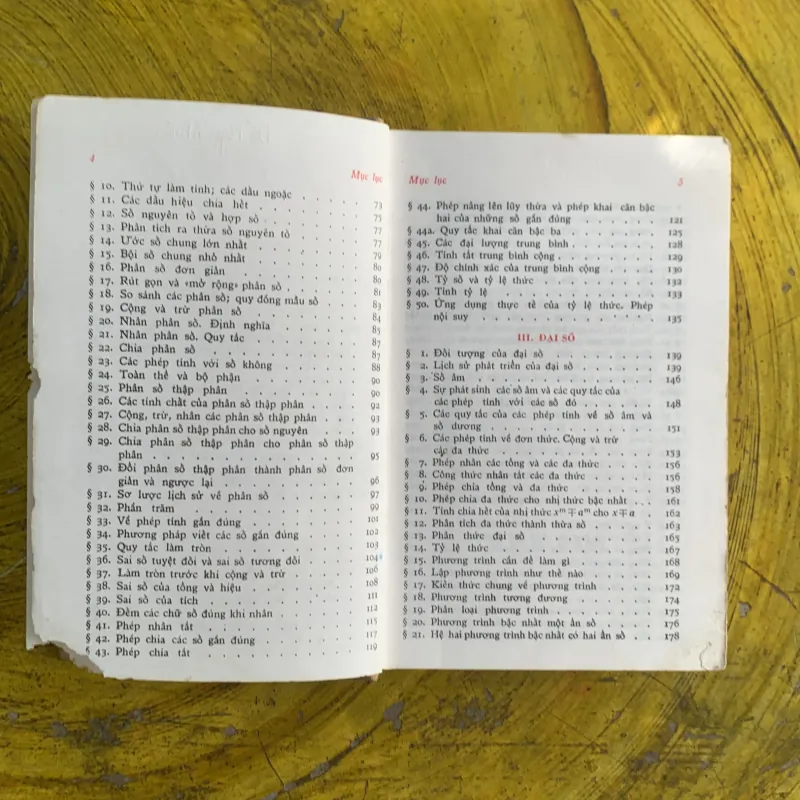 4
Mục lục
§ 10. Thứ tự làm tính; các dấu ngoặc . . . . . 73
§ 11. Các dấu hiệu chia hết . . . . . . . 75
§ 12. Số nguyên tố và hợp số . . . . . . . 77
§ 13. Phân tích ra thừa số nguyên tố . . . . . 77
§ 14. Ước số chung lớn nhất . . . . . . . 79
§ 15. Bội số chung nhỏ nhất . . . . . . . 80
§ 16. Phân số đơn giản . . . . . . . . 80
§ 17. Rút gọn và «mở rộng» phân số . . . . . 81
§ 18. So sánh các phân số; quy đồng mẫu số . . . . 83
§ 19. Cộng và trừ phân số . . . . . . . 84
§ 20. Nhân phân số. Định nghĩa . . . . . . 85
§ 21. Nhân phân số. Quy tắc . . . . . . . 87
§ 22. Chia phân số . . . . . . . . . 87
§ 23. Các phép tính với số không . . . . . . 88
§ 24. Toàn thể và bộ phận . . . . . . . 90
§ 25. Phân số thập phân . . . . . . . . 90
§ 26. Các tính chất của phân số thập phân . . . . 92
§ 27. Cộng, trừ, nhân các phân số thập phân . . . 93
§ 28. Chia phân số thập phân cho số nguyên . . . 93
§ 29. Chia phân số thập phân cho phân số thập
phân . . . . . . . . . . . 95
§ 30. Đổi phân số thập phân thành phân số đơn
giản và ngược lại . . . . . . . . 96
§ 31. Sơ lược lịch sử về phân số . . . . . . 97
§ 32. Phần trăm . . . . . . . . . 99
§ 33. Về phép tính gần đúng . . . . . . . 101
§ 34. Phương pháp viết các số gần đúng . . . . 102
§ 35. Quy tắc làm tròn . . . . . . . . 103
§ 36. Sai số tuyệt đối và sai số tương đối . . . . 104
§ 37. Làm tròn trước khi cộng và trừ . . . . . 106
§ 38. Sai số của tổng và hiệu . . . . . . . 108
§ 39. Sai số của tích . . . . . . . . 111
§ 40. Đếm các chữ số đúng khi nhân . . . . . 112
§ 41. Phép nhân tắt . . . . . . . . . 115
§ 42. Phép chia các số gần đúng . . . . . . 117
§ 43. Phép chia tắt . . . . . . . . . 119
Mục lục 5
§ 44. Phép nâng lên lũy thừa và phép khai căn bậc
hai của những số gần đúng . . . . . . 121
§ 44a. Quy tắc khai căn bậc ba . . . . . . 125
§ 45. Các đại lượng trung bình . . . . . . 128
§ 46. Tính tắt trung bình cộng . . . . . . 129
§ 47. Độ chính xác của trung bình cộng . . . . 130
§ 48. Tỷ số và tỷ lệ thức . . . . . . . 132
§ 49. Tính tỷ lệ . . . . . . . . . 133
§ 50. Ứng dụng thực tế của tỷ lệ thức. Phép
nội suy . . . . . . . . . . 135
III. ĐẠI SỐ
§ 1. Đối tượng của đại số . . . . . . . 139
§ 2. Lịch sử phát triển của đại số . . . . . 139
§ 3. Số âm . . . . . . . . . . 146
§ 4. Sự phát sinh các số âm và các quy tắc của
các phép tính với các số đó . . . . . . 148
§ 5. Các quy tắc của các phép tính về số âm và
số dương . . . . . . . . . . 151
§ 6. Các phép tính về đơn thức. Cộng và trừ
các đa thức . . . . . . . . . 153
§ 7. Phép nhân các tổng và các đa thức . . . . 156
§ 8. Công thức nhân tắt các đa thức . . . . . 156
§ 9. Phép chia tổng và đa thức . . . . . . 158
§ 10. Phép chia đa thức cho nhị thức bậc nhất . . . 161
§ 11. Tính chia hết của nhị thức xᵐ ∓ aᵐ cho x ∓ a . 162
§ 12. Phân tích đa thức thành thừa số . . . . . 163
§ 13. Phân thức đại số . . . . . . . . 165
§ 14. Tỷ lệ thức . . . . . . . . . 167
§ 15. Phương trình cần để làm gì . . . . . . 168
§ 16. Lập phương trình như thế nào . . . . . 169
§ 17. Kiến thức chung về phương trình . . . . 172
§ 18. Phương trình tương đương . . . . . . 174
§ 19. Phân loại phương trình . . . . . . . 175
§ 20. Phương trình bậc nhất một ẩn số . . . . 176
§ 21. Hệ hai phương trình bậc nhất có hai ẩn số . . 178